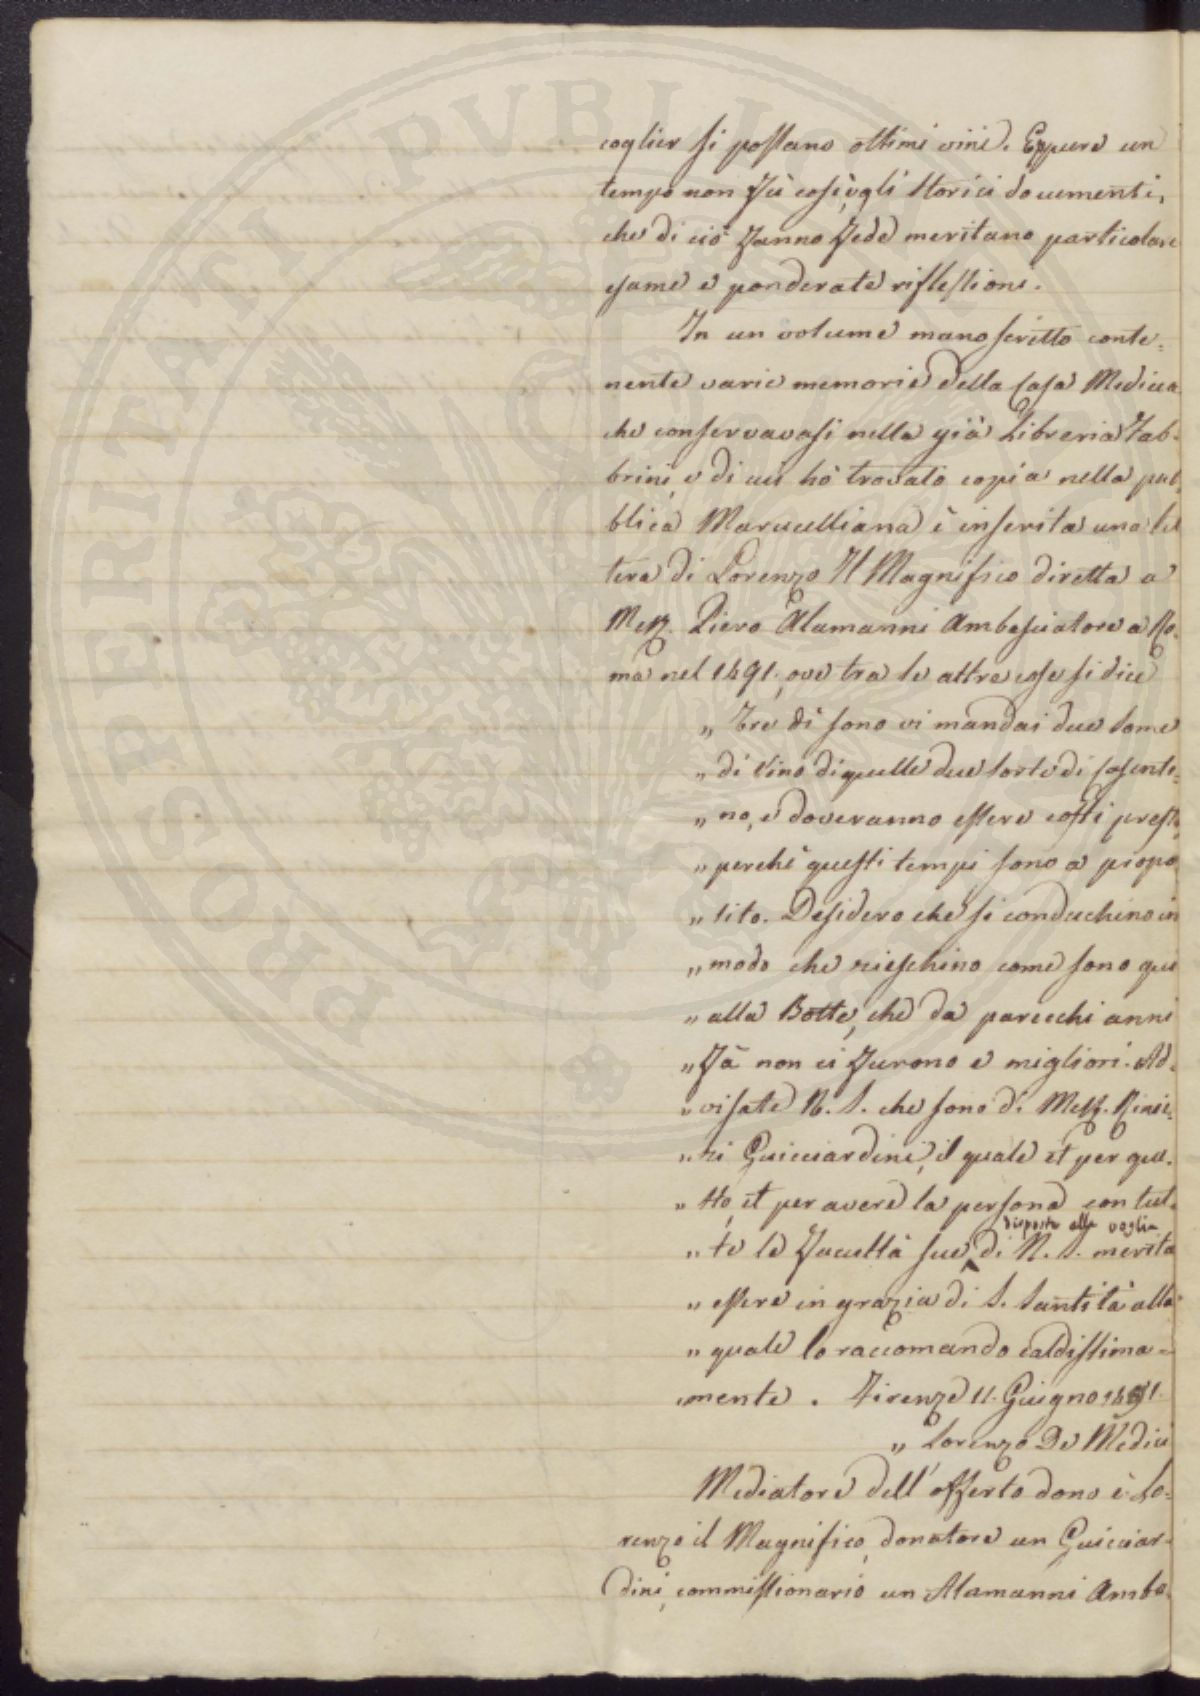 coglier si possano ottimi vini. Eppure un
tempo non fù così, e gli storici documenti,
che di ciò fanno fede meritano particolare
esame e ponderate riflessioni.
In un volume manoscritto conte=
nente varie memorie della Casa Medicea
che conservavasi nella già Libreria Fab=
brini, e di cui hò trovato copia nella pub=
blica Marucelliana è inserita una let
tera di Lorenzo Il Magnifico diretta a
Mess. Piero Alamanni Ambasciatore a Ro=
ma nel 1491., ove tra le altre cose si dice
" Tre dì sono vi mandai due some
" di Vino di quelle due sorte di Casenti=
" no, e doveranno essere costì presto,
" perchè questi tempi sono a propo
" sito. Desidero che si conduchino in
" modo che rieschino come sono qui
" alla Botte, che da parecchi anni
" fà non ci furono e migliori. Ad=
" visate N. S. che sono di Mess. Rinie=
" ri Guicciardini, il quale et per que=
" sto, et per avere la persona con tut=
disposte alle voglie
" te le facultà sue di N. S. merita
" essere in grazia di S. Santità alla
" quale lo raccomando caldissima=
" mente. Firenze 11. Giugno 1491.
" Lorenzo De Medici
Mediatore dell' offerto dono è Lo=
renzo il Magnifico, donatore un Guicciar=
dini, commissionario un Alamanni Amba=
PROSPERITATI PVBLICAE